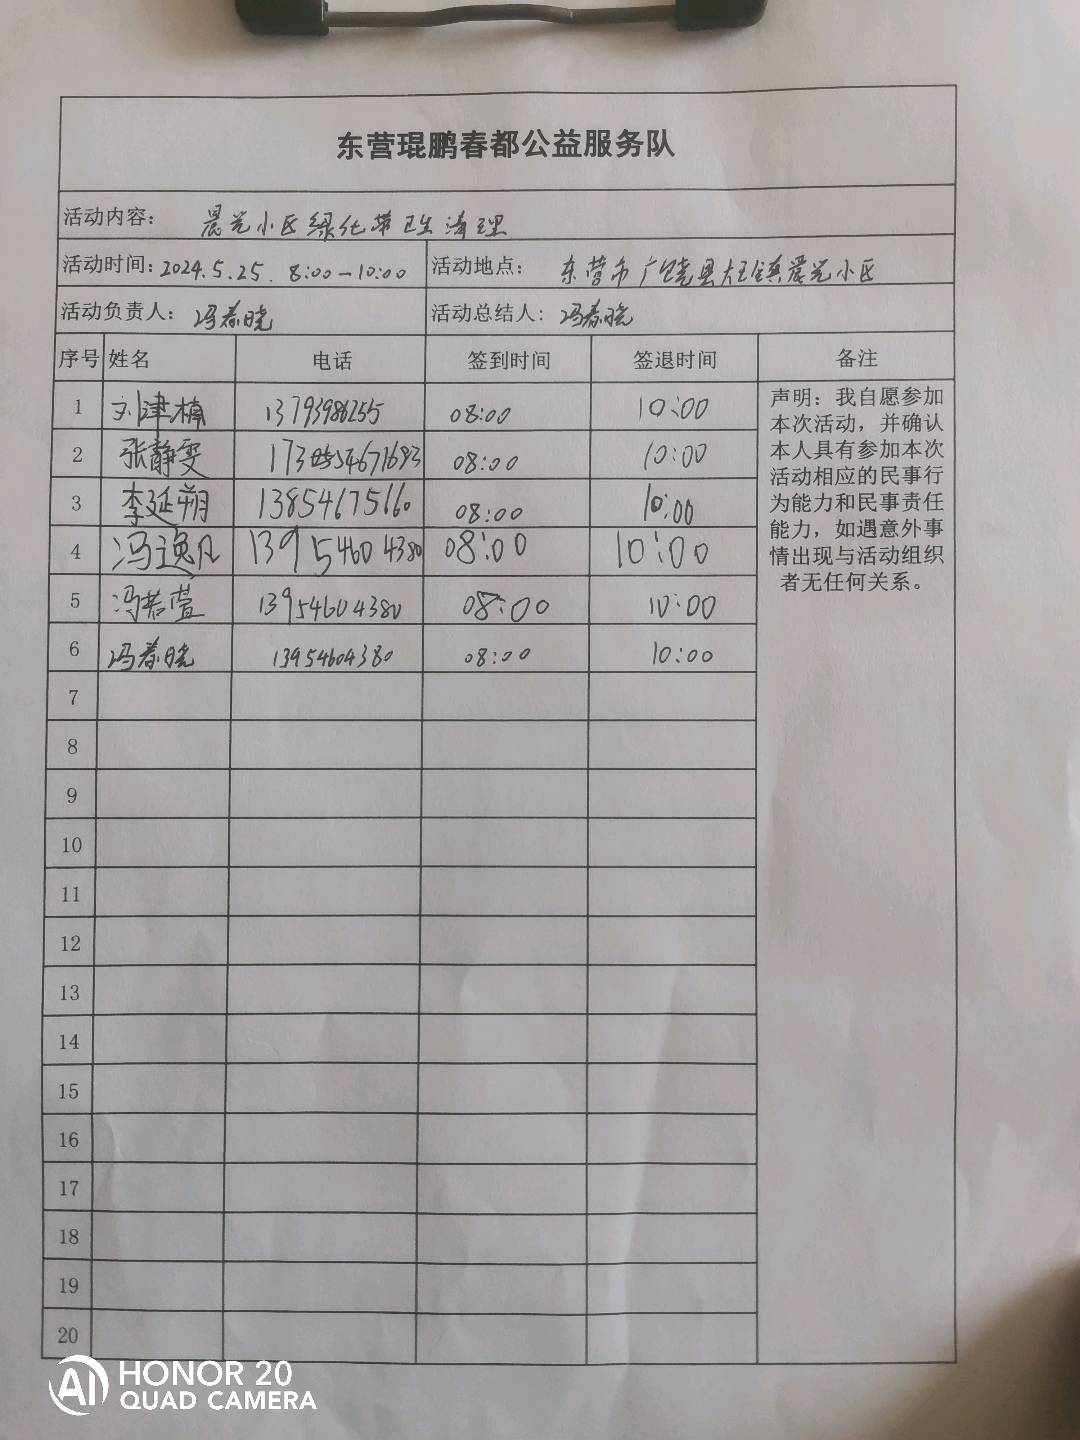 东营琨鹏春都公益服务队
活动内容： 晨光小区绿化带卫生清理
活动时间：2024.5.25. 8:00—10:00 活动地点： 东营市广饶县大王镇晨光小区
活动负责人： 冯春晓 活动总结人： 冯春晓
序号 姓名 电话 签到时间 签退时间 备注
1 刘津楠 13793986255 08:00 10:00
2 张静雯 08:00 10:00
3 李延朔 13854675660 08:00 10:00
4 冯逸凡 13954604380 08:00 10:00
5 冯若萱 13954604380 08:00 10:00
6 冯春晓 13954604380 08:00 10:00
声明：我自愿参加
本次活动，并确认
本人具有参加本次
活动相应的民事行
为能力和民事责任
能力，如遇意外事
情出现与活动组织
者无任何关系。
7
8
9
10
11
12
13
14
15
16
17
18
19
20
AI HONOR 20
QUAD CAMERA